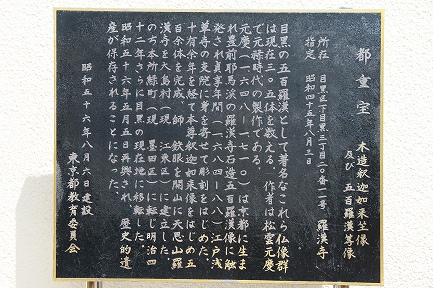 都重宝
木造釈迦如来坐像
及び 五百羅漢等像
所在 目黒区下目黒三丁目二〇番一一号 羅漢寺
指定 昭和四十五年八月三日
目黒の五百羅漢として著名なこれら仏像群
は現在三〇五体を数える。作者は松雲元慶
で元禄時代の製作である。
元慶(一六四八―一七一〇)は京都に生ま
れ豊前耶馬渓の羅漢寺石造五百羅漢像に触
発され貞享年間(一六八四―八八)江戸浅
草寺の支院に身を寄せて彫刻をはじめた。
十有余年を経て本尊釈迦如来像をはじめ五
百余体を完成、師 鉄眼を開山に天恩山羅
漢寺を大島村(現 江東区)に建立した。
のち本所緑町(現 墨田区)に転じ明治四
十二年さらに目黒の現在地に移転した。
昭和五十六年五月五日再興され、歴史的遺
産が保存されることになった。
昭和五十六年八月六日建設
東京都教育委員会